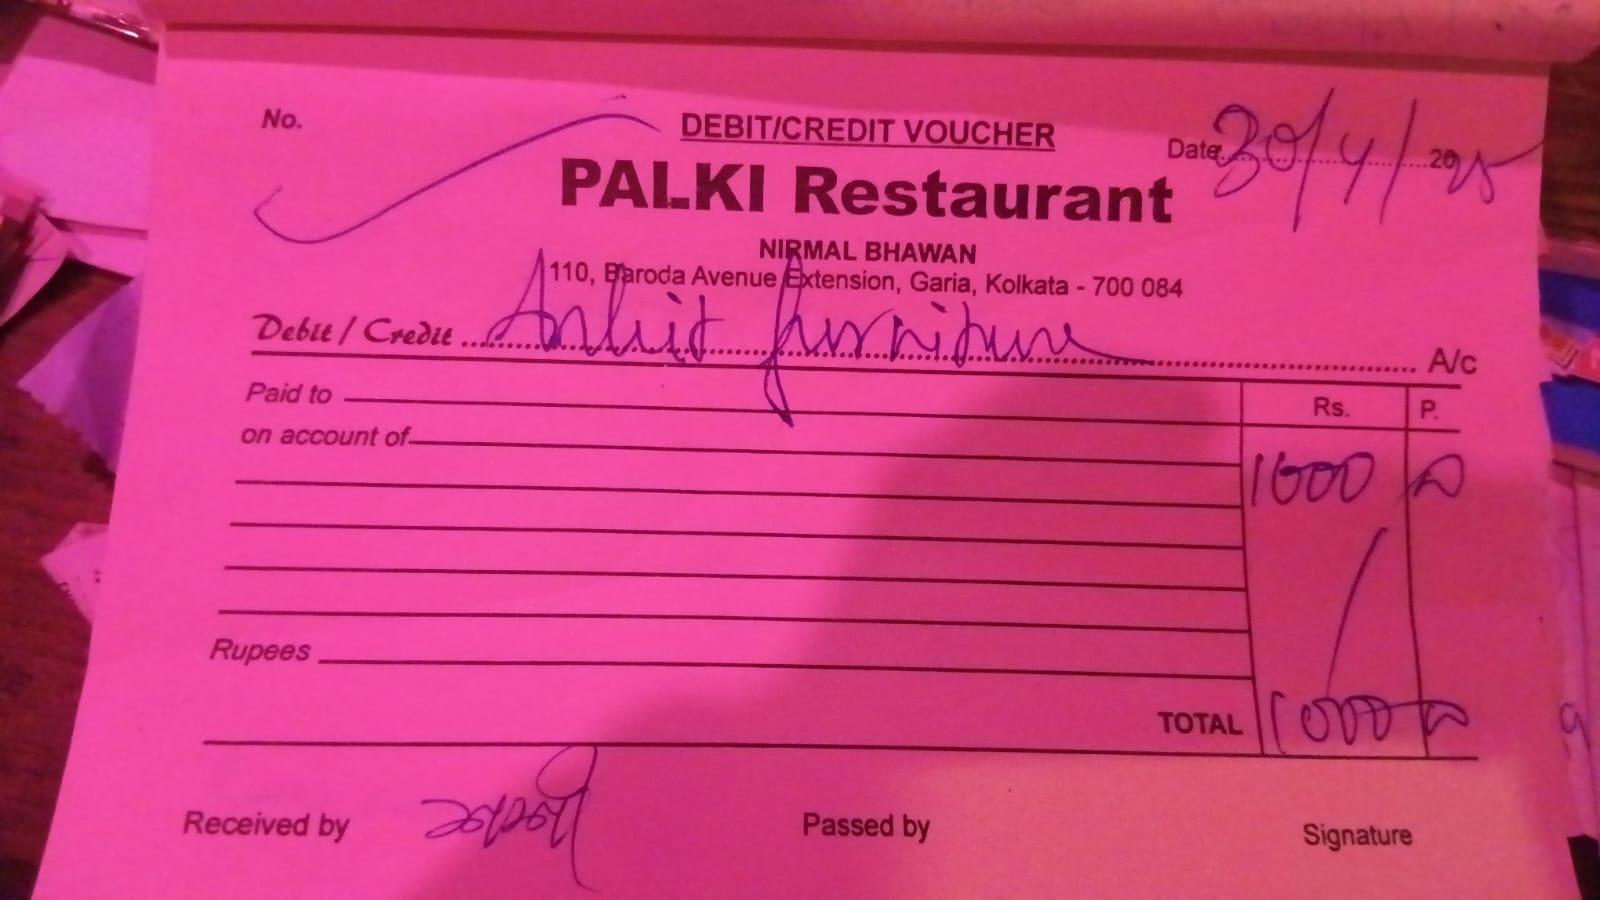 No.
DEBIT/CREDIT VOUCHER
Date 30/4/2025
PALKI Restaurant
NIRMAL BHAWAN
110, Baroda Avenue Extension, Garia, Kolkata - 700 084
Debit / Credit furniture A/c
Paid to Rs. P.
on account of
1000 00
Rupees
TOTAL 1000 00
Received by Passed by Signature